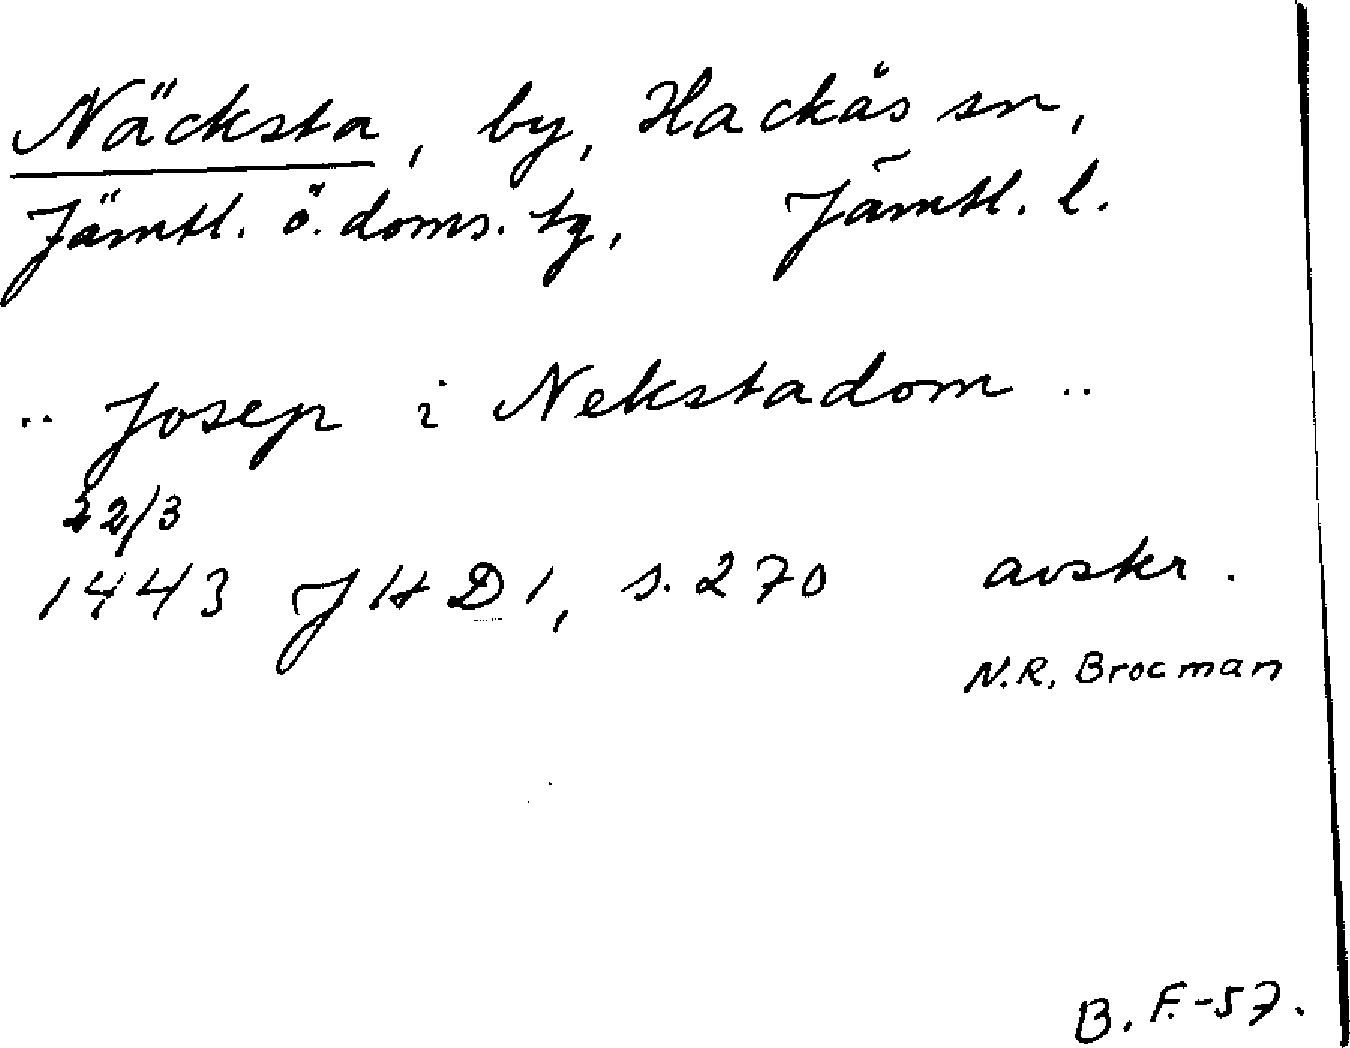 Näcksta, by, Hackås sn,
Jämtl. ö. doms. tg, Jämtl. l.
.. Josep i Nekstadom ..
22/3
1443 JHD 1, s. 270 avskr.
N.R. Brocman
B. F. -57.